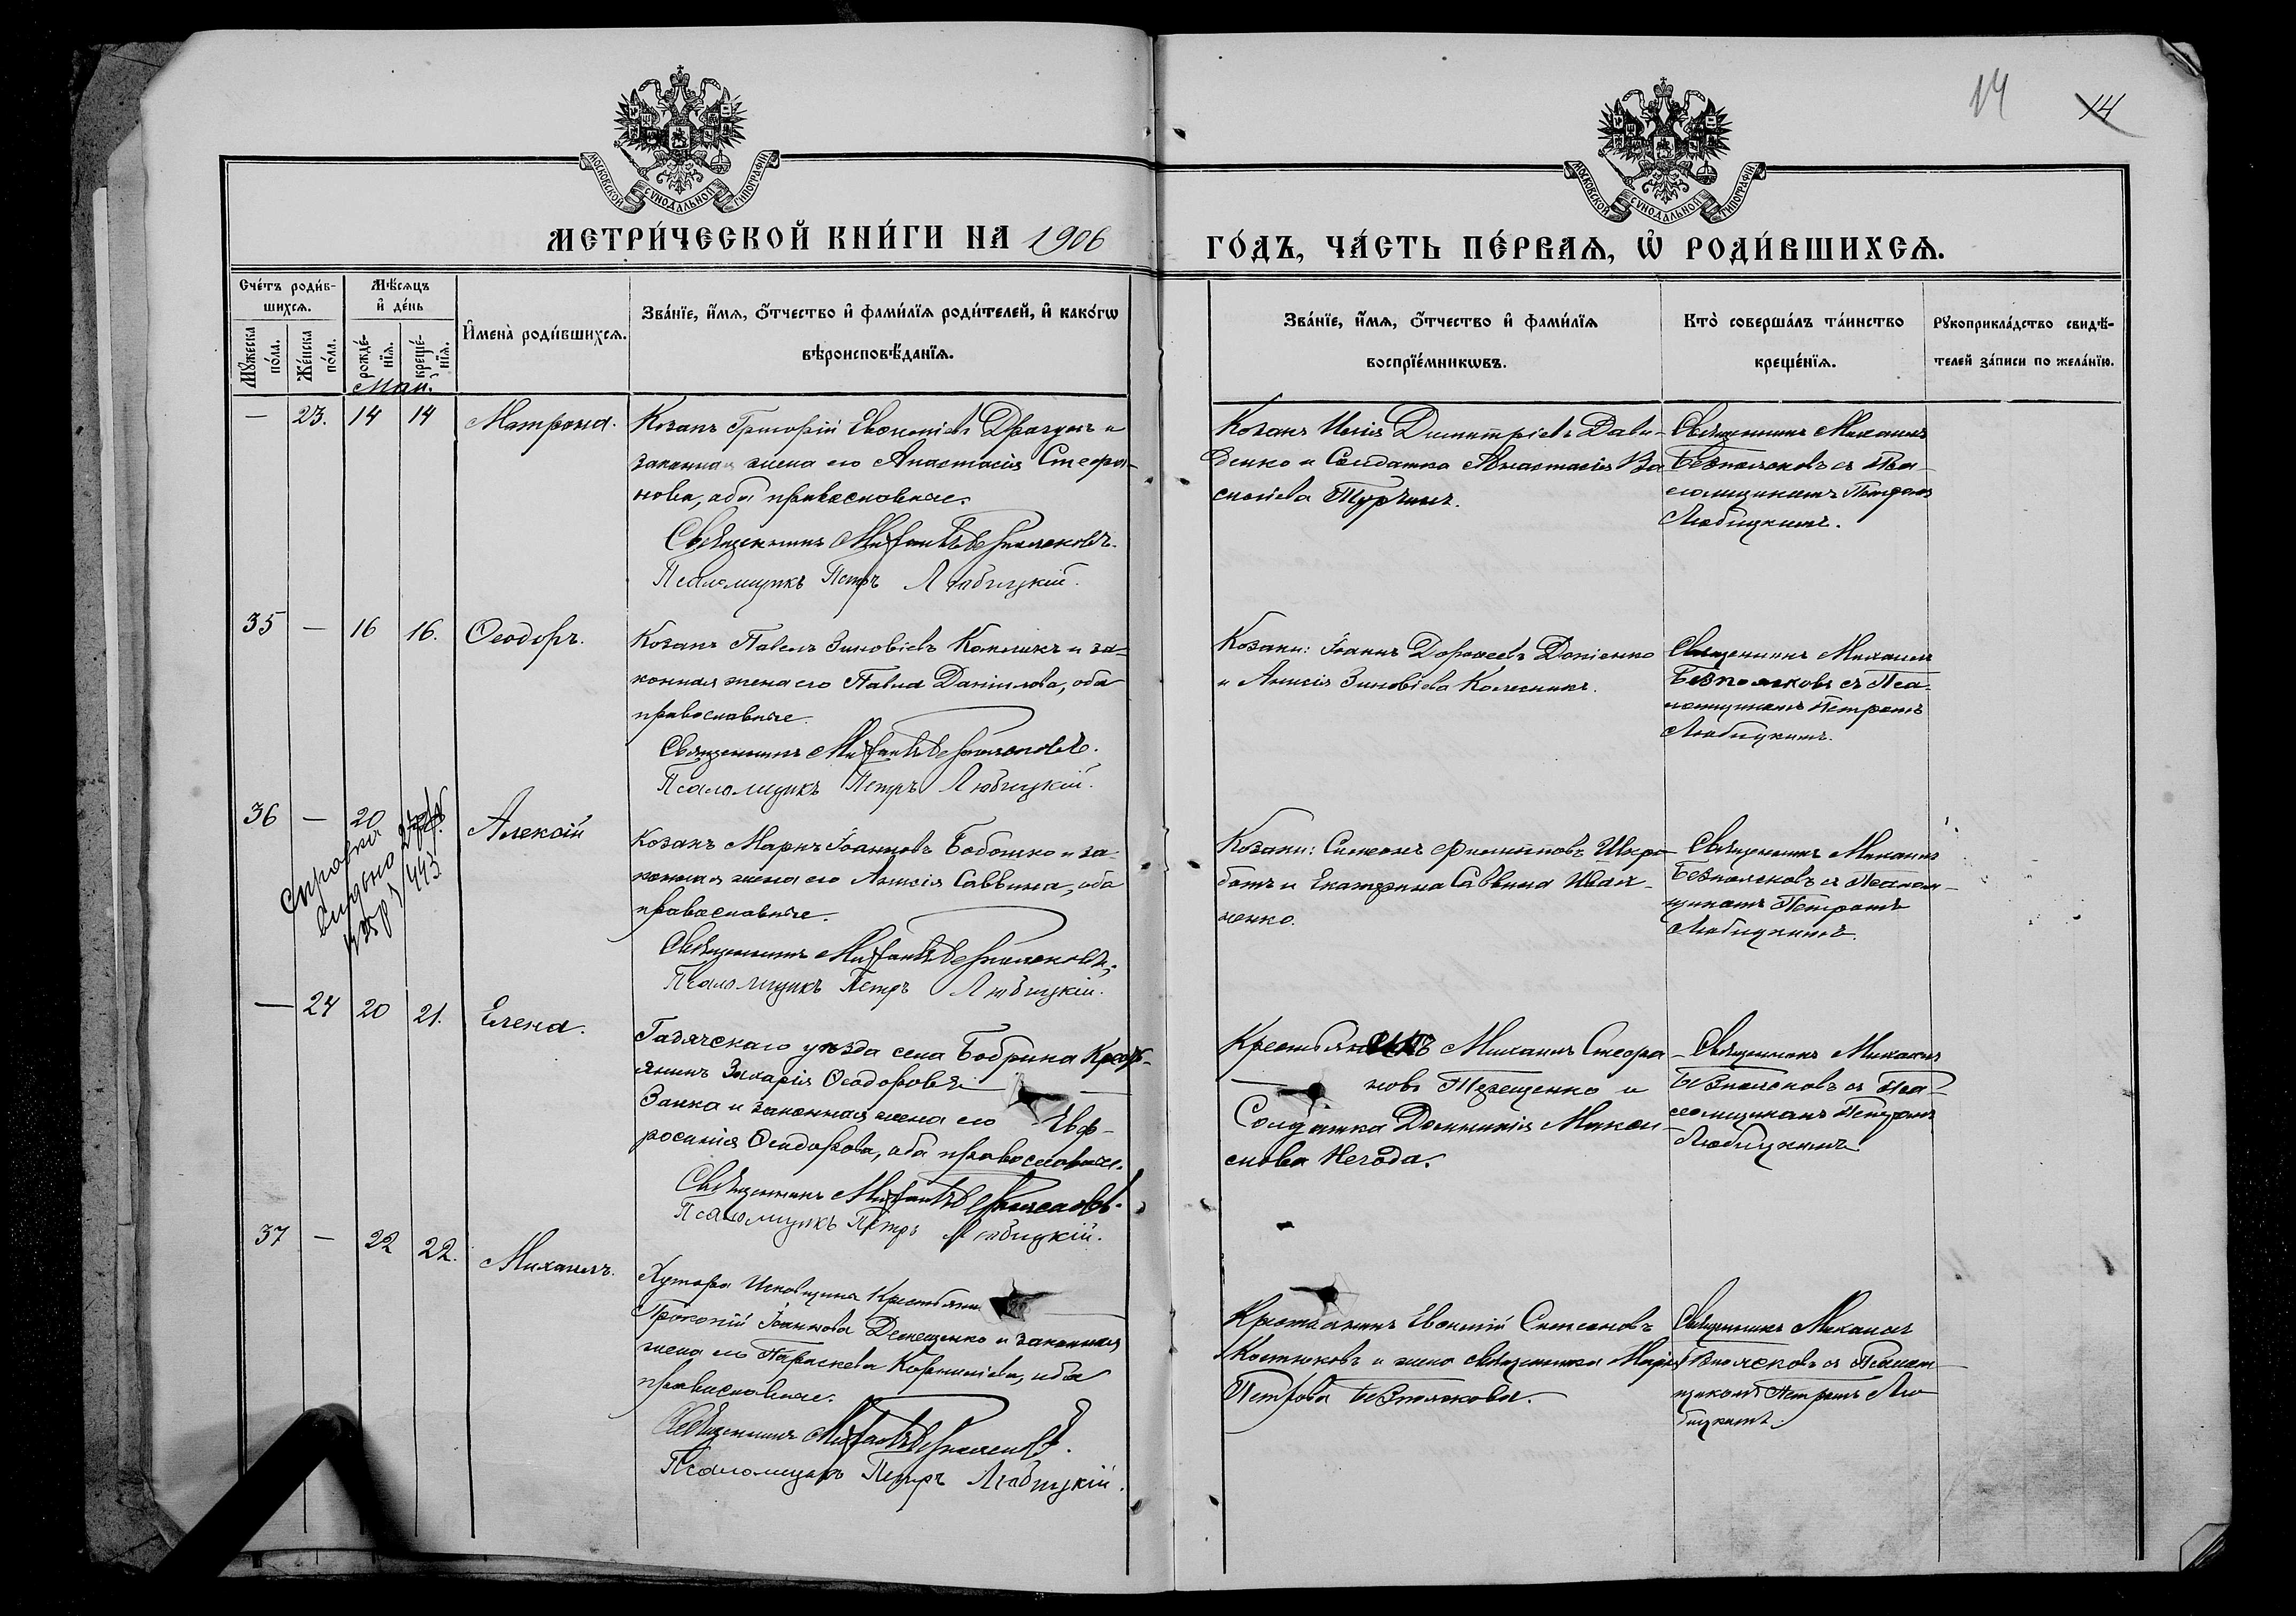 14 14
МОСКОВСКОЙ СУНОДАЛЬНОЙ ТИПОГРАФІИ
МОСКОВСКОЙ СУНОДАЛЬНОЙ ТИПОГРАФІИ
МЕТРИ́ЧЕСКОЙ КНИ́ГИ НА 1906
ГО́ДЪ, ЧА́СТЬ ПЕ́РВАѦ, Ѡ҆ РОДИ́ВШИХСѦ.
Сче́тъ роди́в-
шихсѧ.
Мꙋ́жеска по́ла.
Же́нска по́ла.
Мѣ́сѧцъ
и҆ де́нь
рожде́-
нїѧ.
креще́-
нїѧ.
И҆мена̀ роди́вшихсѧ.
Зва́нїе, и҆́мѧ, ѻ҆́тчество и҆ фами́лїѧ роди́телей, и҆ како́гѡ
вѣроисповѣ́данїѧ.
Зва́нїе, и҆́мѧ, ѻ҆́тчество и҆ фами́лїѧ
воспрїе́мникѡвъ.
Кто̀ соверша́лъ та́инство
креще́нїѧ.
Рꙋкоприкла́дство свидѣ́-
телей за́писи по жела́нїю.
Маи.
— 23. 14 14 Матрона.
Козакъ Григорій Драгунъ и
законная жена его Анастасія Стефа-
нова, оба православные.
Священникъ Михаилъ Безполсковъ.
Псаломщикъ Петръ Любицкій.
Козакъ Илія Димитріевъ Дави-
денко и Солдатка Анастасія Ва
силіева Турчинъ.
Священникъ Михаилъ
Безполсковъ съ Пса-
ломщикомъ Петромъ
Любицкимъ.
35 — 16 16. Ѳеодоръ.
Козакъ Павелъ Зиновіевъ и за-
конная жена его Павла Даніилова, оба
православные.
Священникъ Михаилъ Безполсковъ.
Псаломщикъ Петръ Любицкій.
Козаки: Іоаннъ Дороѳеевъ
и Анисія Зиновіева Колесникъ.
Священникъ Михаилъ
Безполсковъ съ Пса-
ломщикомъ Петромъ
Любицкимъ.
36 — 20 Алексій
Справка
выдана
443
Козакъ Маркъ Іоанновъ Бобошко и за-
конная жена его Анисія Саввина, оба
православные.
Священникъ Михаилъ Безполсковъ.
Псаломщикъ Петръ Любицкій.
Козаки: Симеонъ Филипповъ Шкро-
ботъ и Екатерина Саввина Иван-
ченко.
Священникъ Михаилъ
Безполсковъ съ Псалом-
щикомъ Петромъ
Любицкимъ.
— 24 20 21. Елена.
Гадячскаго уѣзда села Бобрика Кресть-
янинъ Захарія Ѳеодоровъ
Заика и законная жена его Евф-
росинія Ѳеодорова, оба православные.
Священникъ Михаилъ Безполсковъ.
Псаломщикъ Петръ Любицкій.
Крестьянинъ Михаилъ Стефа-
новъ Терещенко и
Солдатка Домникія Макси-
мова Негода.
Священникъ Михаилъ
Безполсковъ съ Пса-
ломщикомъ Петромъ
Любицкимъ
37 — 22 22. Михаилъ.
Хутора Крестьянинъ
Прокопій Іоаннова и законная
жена его Параскева Корниліева, оба
православные.
Священникъ Михаилъ Безполсковъ.
Псаломщикъ Петръ Любицкій.
Крестьянинъ Евѳимій Симеоновъ
Костюковъ и жена священника Марія
Петрова Безполскова.
Священникъ Михаилъ
Безполсковъ съ Псалом-
щикомъ Петромъ Лю-
бицкимъ.